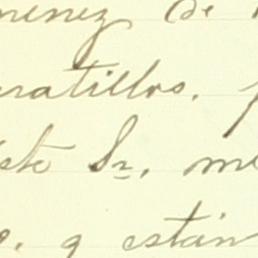 menez de
ratillos.
ste Sr. me
q están